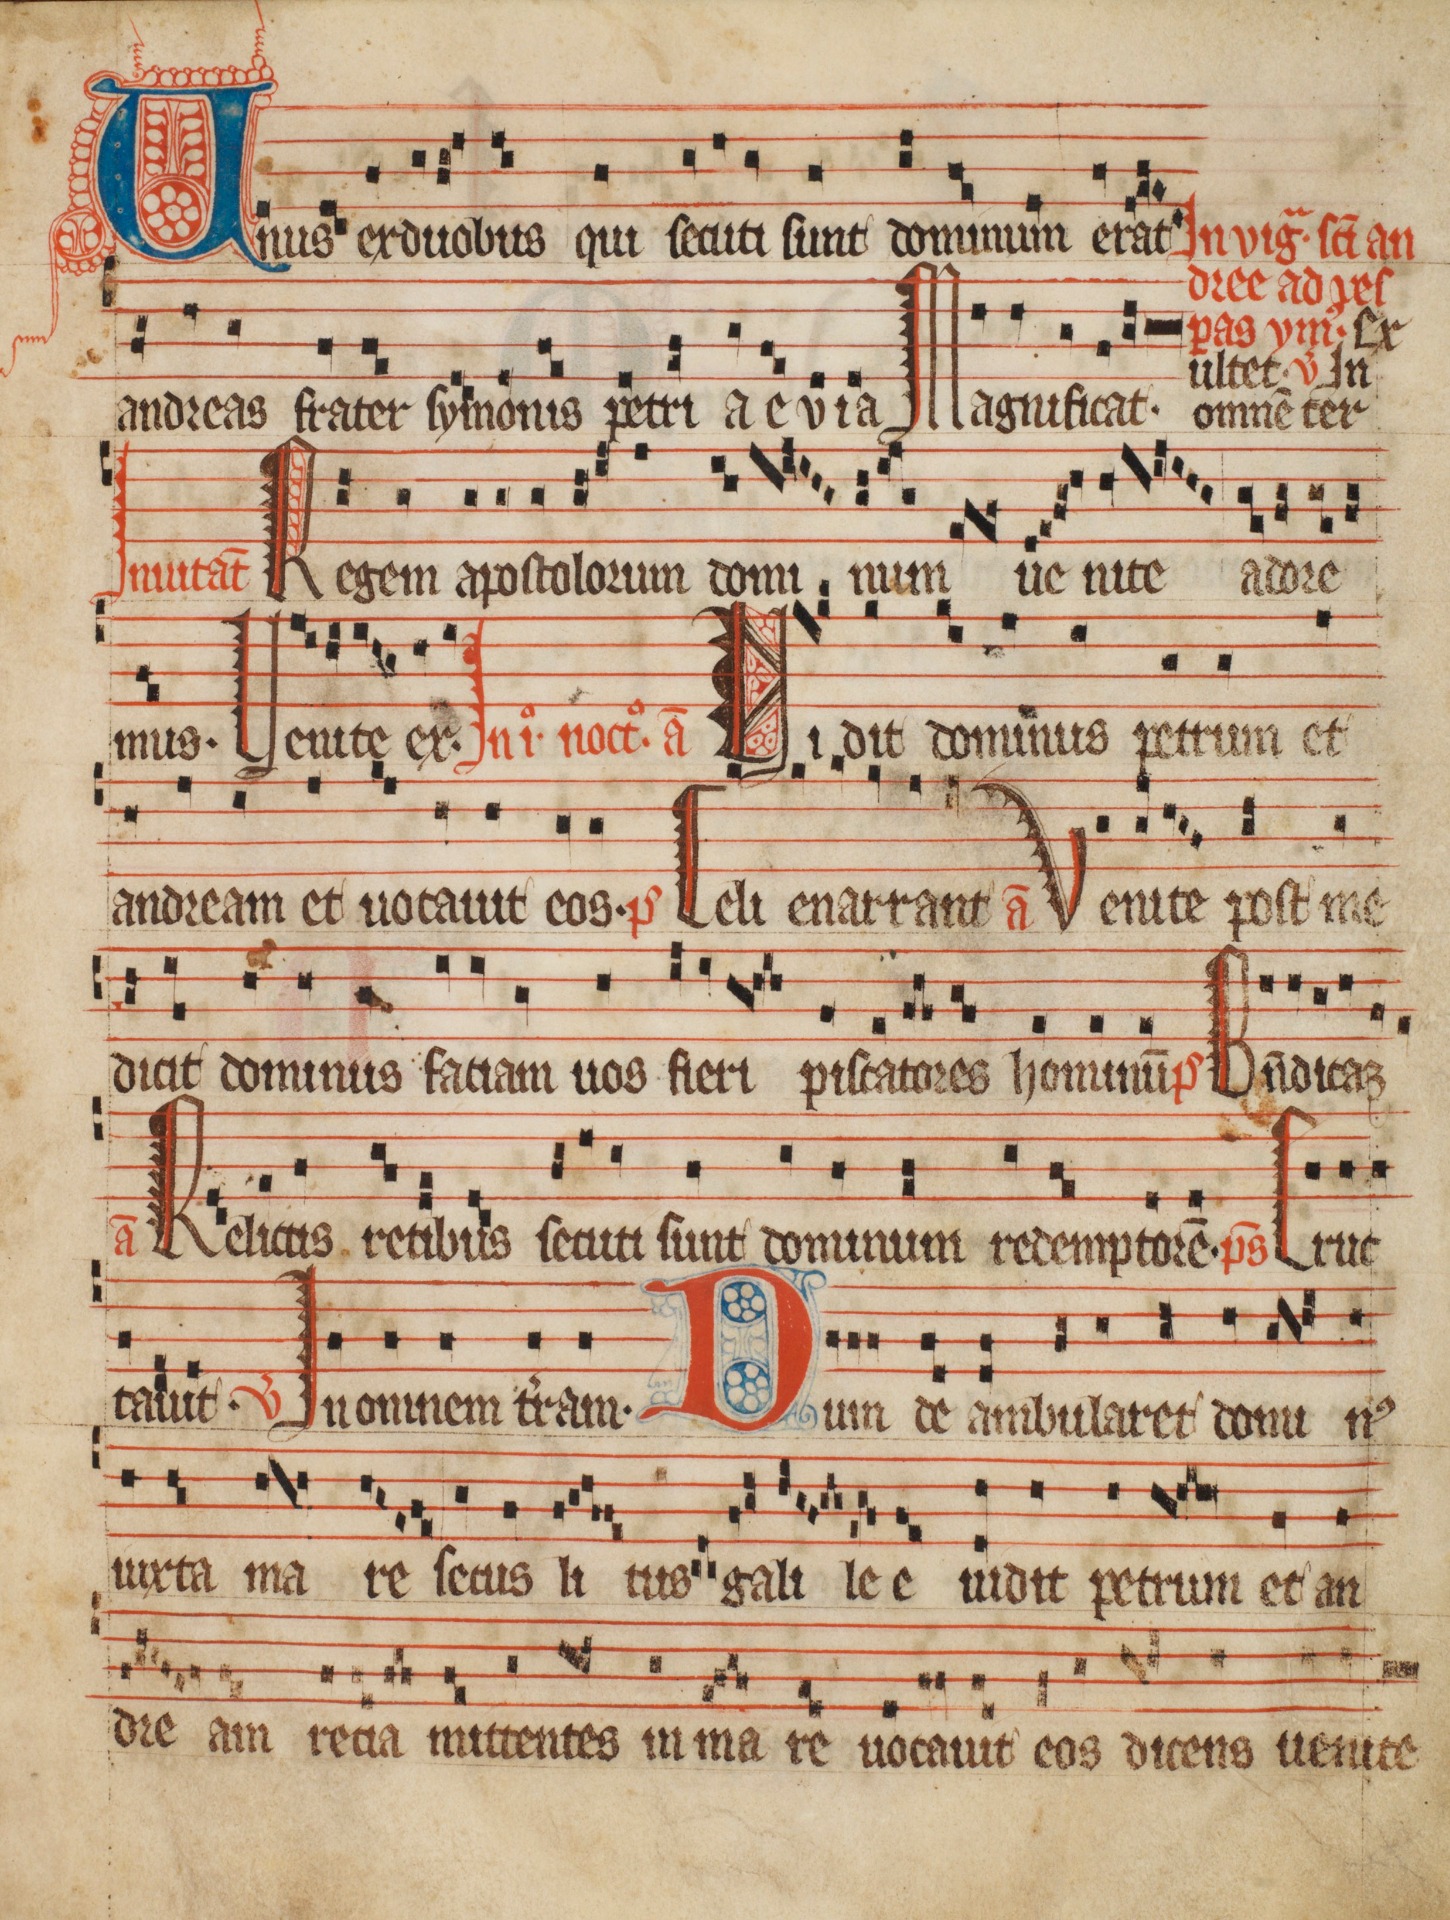 Unus ex duobus qui secuti sunt dominum erat In vigͣ. sc̄i an
dree ad ves
pas ym̄. Ex
ultet. V In
andreas frater symonis petri a e v i a Magnificat. omnē ter
Inuitat̄ Regem apostolorum domi num ue nite adore
mus. Uenite ex. In i. noct. ā Vi dit dominus petrum et
andream et uocauit eos. p̄s Celi enarrant ā Venite post me
dicit dominus faciam uos fieri piscatores hominū p̄s Bn̄dicaꝫ
ā Relictis retibus secuti sunt dominum redemptorē. p̄s Eruc
tauit. V In omnem t̄ram. Dum de ambularet domi nꝰ
iuxta ma re secus li tus gali le e uidit petrum et an
dre am recia mittentes in ma re uocauit eos dicens uenite